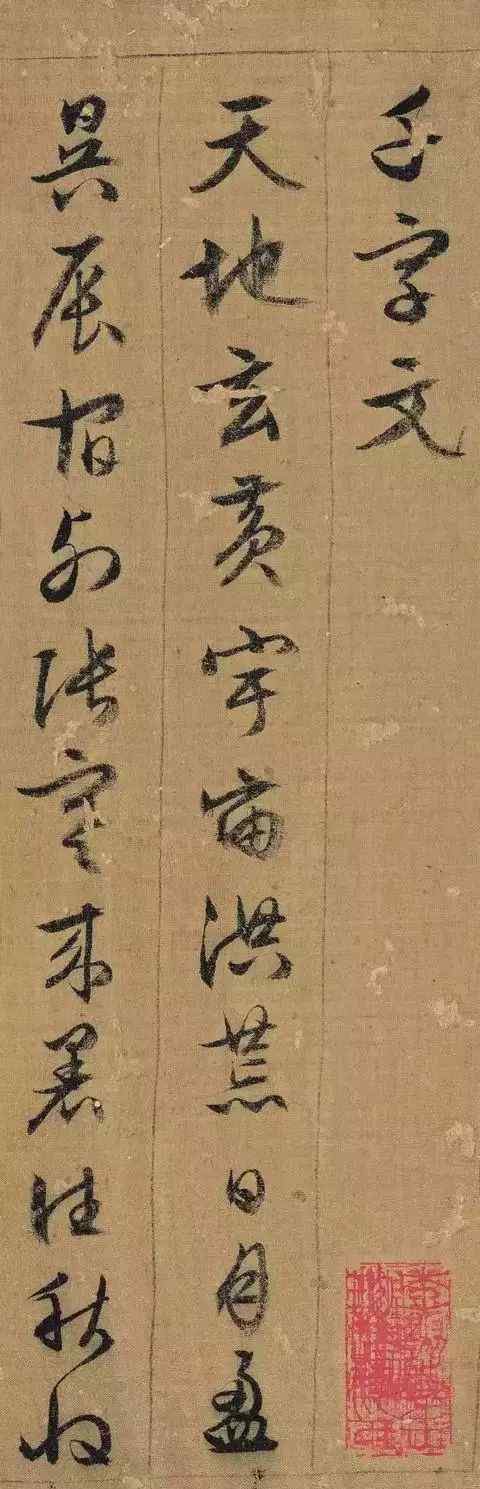 千字文
天地玄黃宇宙洪荒日月盈
昃辰宿列張寒來暑往秋收